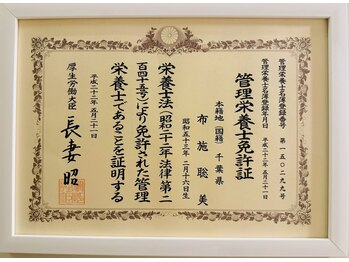 管理栄養士名簿登録番号　第一五〇二九九号
管理栄養士名簿登録年月日　平成二十二年五月二十一日
管理栄養士免許証
本籍地（国籍）千葉県
布施聡美
昭和五十三年二月十六日生
栄養士法（昭和二十二年法律第二
百四十五号）により免許された管理
栄養士であることを証明する
平成二十二年五月二十一日
厚生労働大臣　長妻昭